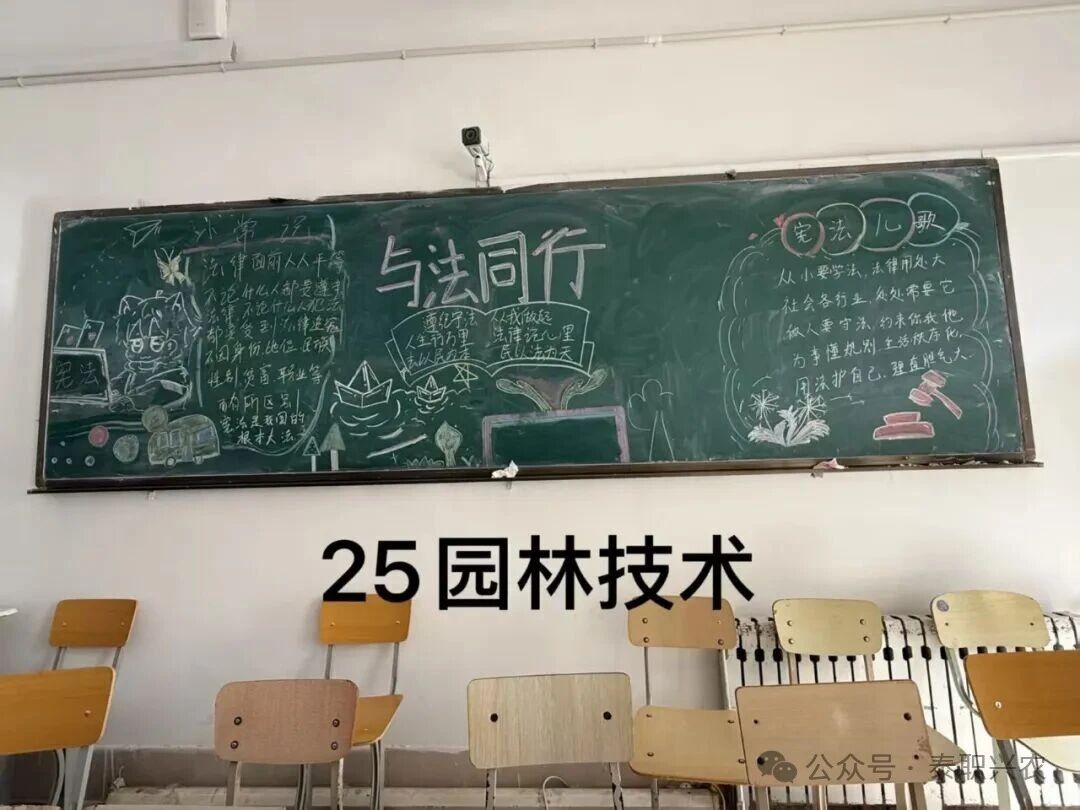 小常识
法律面前人人平等
不论什么人都要遵守
法律，不论什么人犯法
都要受到法律追究
不因身份、地位、民族
性别、贫富、职业等
而有所区别
宪法是我国的
根本大法
宪法
与法同行
遵纪守法
人生万里
从我做起
法律记心里
宪法儿歌
从小要学法，法律用处大
社会各行业，处处需要它
做人要守法，约束你我他
办事懂规则，生活秩序化
用法护自己，理直胆气大
25园林技术
公众号·泰职兴农